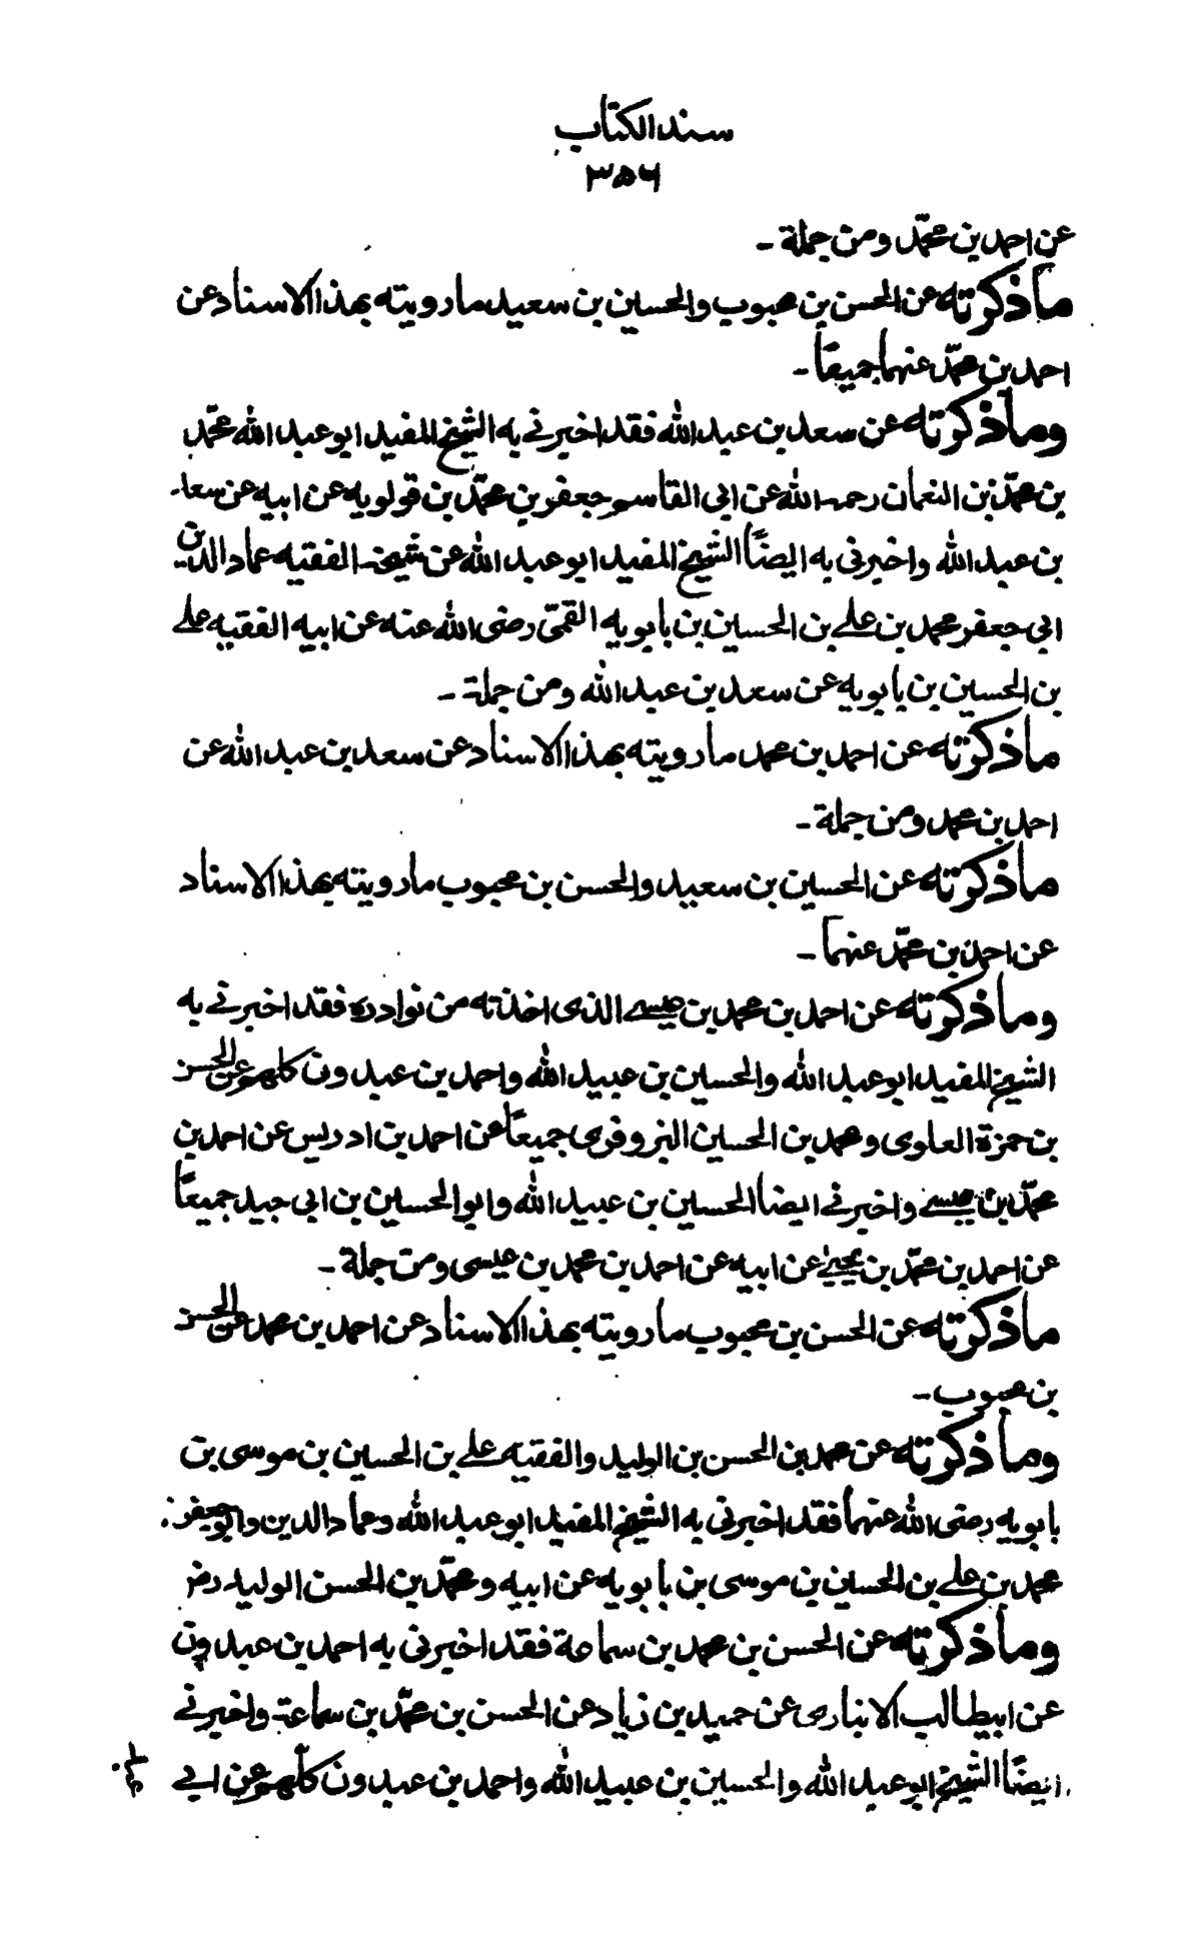 سند الكتاب
٣٥٦
عن احمد بن محمّد ومن جملة ـ
ما ذكرته عن الحسن بن محبوب والحسين بن سعيد ما رويته بهذا الاسناد عن
احمد بن محمّد عنهما جميعًا ـ
وما ذكرته عن سعد بن عبد الله فقد اخبرنے به الشيخ المفيد ابو عبد الله محمّد
بن محمّد بن النعمان رحمه الله عن ابی القاسم جعفر بن محمّد بن قولويه عن ابيه عن سعد
بن عبد الله واخبرنی به ايضًا الشيخ المفيد ابو عبد الله عن شيخه الفقيه عماد الدين
ابی جعفر محمد بن علے بن الحسين بن بابويه القمّی رضی الله عنه عن ابيه الفقيه علے
بن الحسين بن بابويه عن سعد بن عبد الله ومن جملة ـ
ما ذكرته عن احمد بن محمد ما رويته بهذا الاسناد عن سعد بن عبد الله عن
احمد بن محمد ومن جملة ـ
ما ذكرته عن الحسين بن سعيد والحسن بن محبوب ما رويته بهذا الاسناد
عن احمد بن محمّد عنهما ـ
وما ذكرته عن احمد بن محمد بن عيسے الذی اخذته من نوادره فقد اخبرنے به
الشيخ المفيد ابو عبد الله والحسين بن عبيد الله واحمد بن عبدون كلهم عن الحسن
بن حمزة العلوی ومحمد بن الحسين البزوفری جميعًا عن احمد بن ادريس عن احمد بن
محمّد بن عيسے واخبرنے ايضا الحسين بن عبيد الله وابو الحسين بن ابی جيد جميعًا
عن احمد بن محمّد بن يحيیٰ عن ابيه عن احمد بن محمد بن عيسی ومن جملة ـ
ما ذكرته عن الحسن بن محبوب ما رويته بهذا الاسناد عن احمد بن محمد عن الحسن
بن محبوب ـ
وما ذكرته عن محمد بن الحسن بن الوليد والفقيه علے بن الحسين بن موسی بن
بابويه رضی الله عنهما فقد اخبرنی به الشيخ المفيد ابو عبد الله وعماد الدين وابو جعفر
محمد بن علے بن الحسين بن موسی بن بابويه عن ابيه ومحمّد بن الحسن الوليد رضہ
وما ذكرته عن الحسن بن محمد بن سماعة فقد اخبرنی به احمد بن عبدون
عن ابيطالب الانباری عن حميد بن زياد عن الحسن بن محمّد بن سماعة واخبرنے
ايضًا الشيخ ابو عبد الله والحسين بن عبيد الله واحمد بن عبدون كلّهم عن ابے